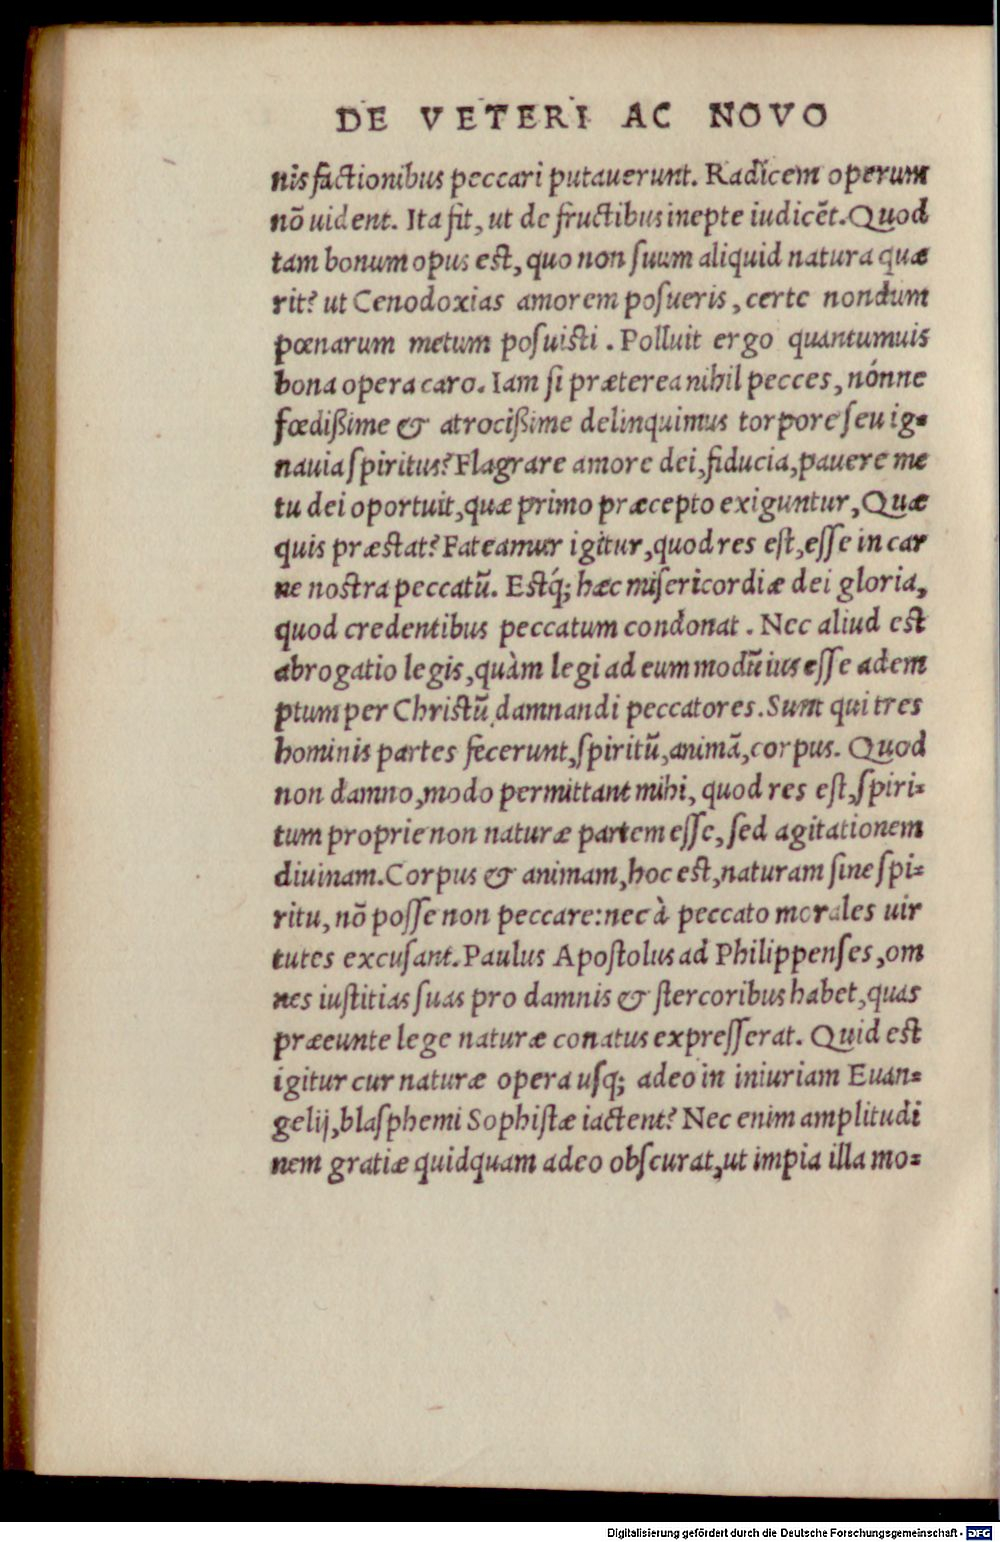 DE VETERI AC NOVO
nis factionibus peccari putauerunt. Radicem operum
nō uident. Ita fit, ut de fructibus inepte iudicēt. Quod
tam bonum opus est, quo non suum aliquid natura quæ
rit? ut Cenodoxias amorem posueris, certe nondum
pœnarum metum posuisti. Polluit ergo quantumuis
bona opera caro. Iam si præterea nihil pecces, nónne
fœdißime & atrocißime delinquimus torpore seu ig-
nauia spiritus? Flagrare amore dei, fiducia, pauere me
tu dei oportuit, quæ primo præcepto exiguntur, Quæ
quis præstat? Fateamur igitur, quod res est, esse in car
ne nostra peccatū. Estq́; hæc misericordiæ dei gloria,
quod credentibus peccatum condonat. Nec aliud est
abrogatio legis, quàm legi ad eum modū ius esse adem
ptum per Christū damnandi peccatores. Sunt qui tres
hominis partes fecerunt, spiritū, animā, corpus. Quod
non damno, modo permittant mihi, quod res est, spiri-
tum proprie non naturæ partem esse, sed agitationem
diuinam. Corpus & animam, hoc est, naturam sine spi-
ritu, nō posse non peccare: nec à peccato morales uir
tutes excusant. Paulus Apostolus ad Philippenses, om
nes iustitias suas pro damnis & stercoribus habet, quas
præeunte lege naturæ conatus expresserat. Quid est
igitur cur naturæ opera usq; adeo in iniuriam Euan-
gelij, blasphemi Sophistæ iactent? Nec enim amplitudi
nem gratiæ quidquam adeo obscurat, ut impia illa mo-
Digitalisierung gefördert durch die Deutsche Forschungsgemeinschaft - DFG